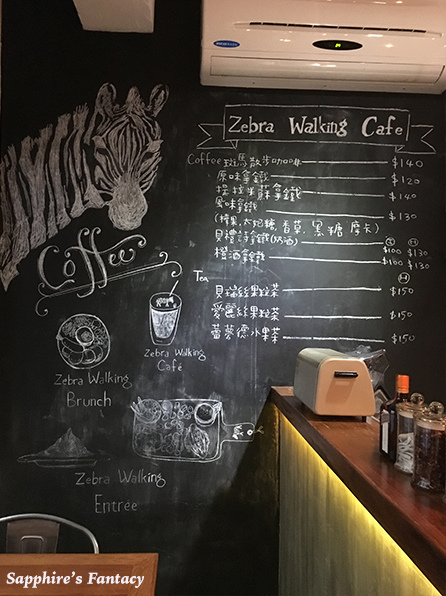 Zebra Walking Cafe
Coffee 斑馬散步咖啡 $140
原味拿鐵 $120
提拉米蘇拿鐵 $140
風味拿鐵 $130
(榛果, 太妃糖, 香草, 黑糖, 摩卡)
貝禮詩拿鐵(奶酒)
橙酒拿鐵 $100 $130
Tea
貝瑞絲果粒茶 $150
愛麗絲果粒茶 $150
蕾夢德水果茶 $150
Coffee
Zebra Walking
Café
Zebra Walking
Brunch
Zebra Walking
Entrée
Sapphire's Fantacy